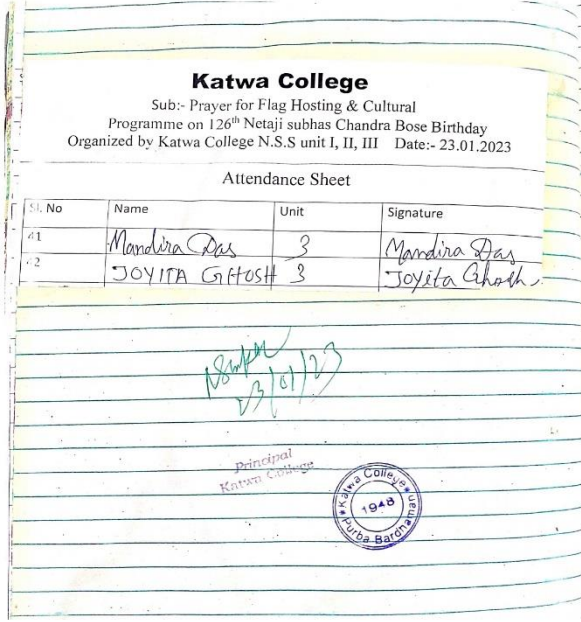 Katwa College
Sub:- Prayer for Flag Hosting & Cultural
Programme on 126th Netaji subhas Chandra Bose Birthday
Organized by Katwa College N.S.S unit I, II, III Date:- 23.01.2023
Attendance Sheet
Sl. No Name Unit Signature
41 Mandira Das 3 Mandira Das
42 JOYITA GHOSH 3 Joyita Ghosh
23/01/23
Principal
Katwa College
Katwa College
1948
Purba Bardhaman